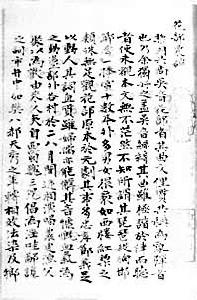 花部農譚
梨園共尚吳音花部者其曲文俚質共稱為亂彈者
也乃余獨好之蓋吳音繁縟其曲雖極諧於律而聽
者使未覩本文無不茫然不知所謂其琵琶殺狗邯
鄲夢一捧雪十數本外多男女猥褻如西樓紅梨之
類殊無足觀花部原本於元劇其事多忠孝節義足
以動人其詞直質雖婦孺亦能解其音慷慨血氣為
之動盪郭外各村於二八月間遞相演唱農叟漁父
聚以為歡由來久矣自西蜀魏三兒倡為淫哇鄙謔
之詞市井中如樊八郝天秀之輩轉相效法染及鄉